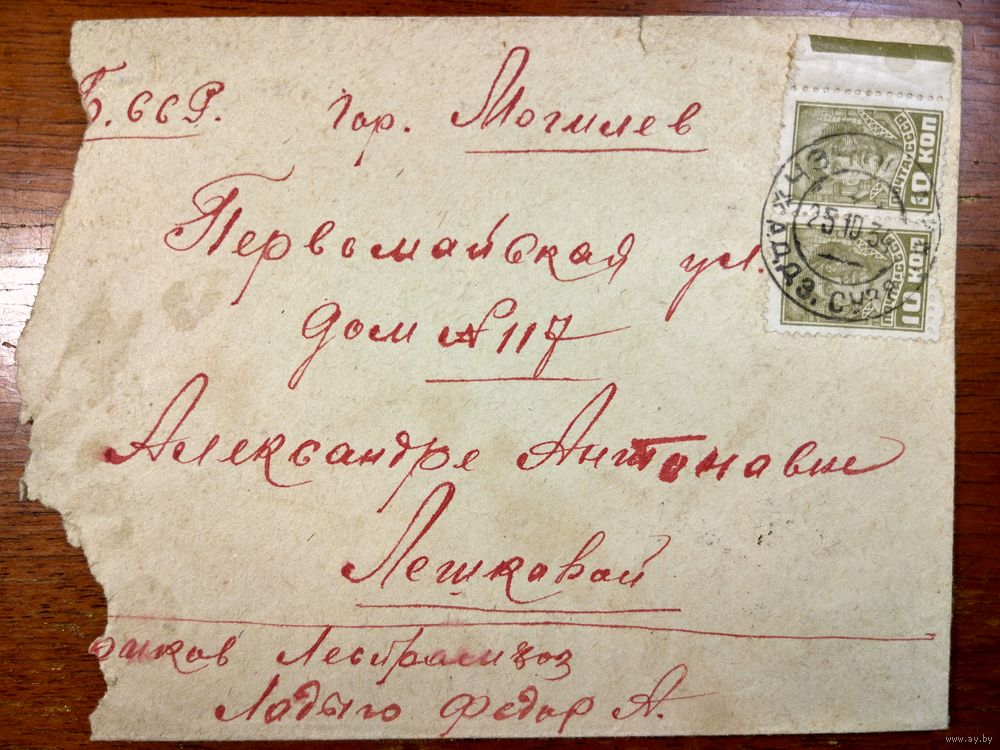 Б. ССР. гор. Могилев
Первомайская ул.
дом № 117
Александре Антонавне
Лешкавой
Лестрамхоз
Ладыго Федор А.
ПОЧТА СССР 10 КОП
ПОЧТА СССР 10 КОП
25 10 3
www.ay.by